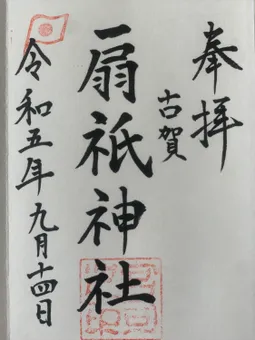 奉拝
古賀
扇祗神社
令和五年九月十四日